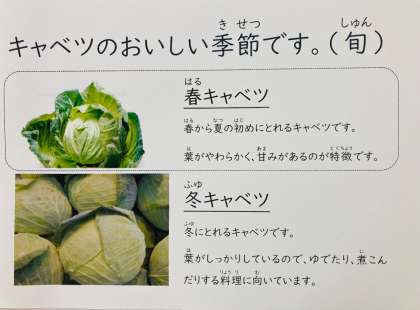 キャベツのおいしい季節です。(旬)
春キャベツ
春から夏の初めにとれるキャベツです。
葉がやわらかく、甘みがあるのが特徴です。
冬キャベツ
冬にとれるキャベツです。
葉がしっかりしているので、ゆでたり、煮こん
だりする料理に向いています。